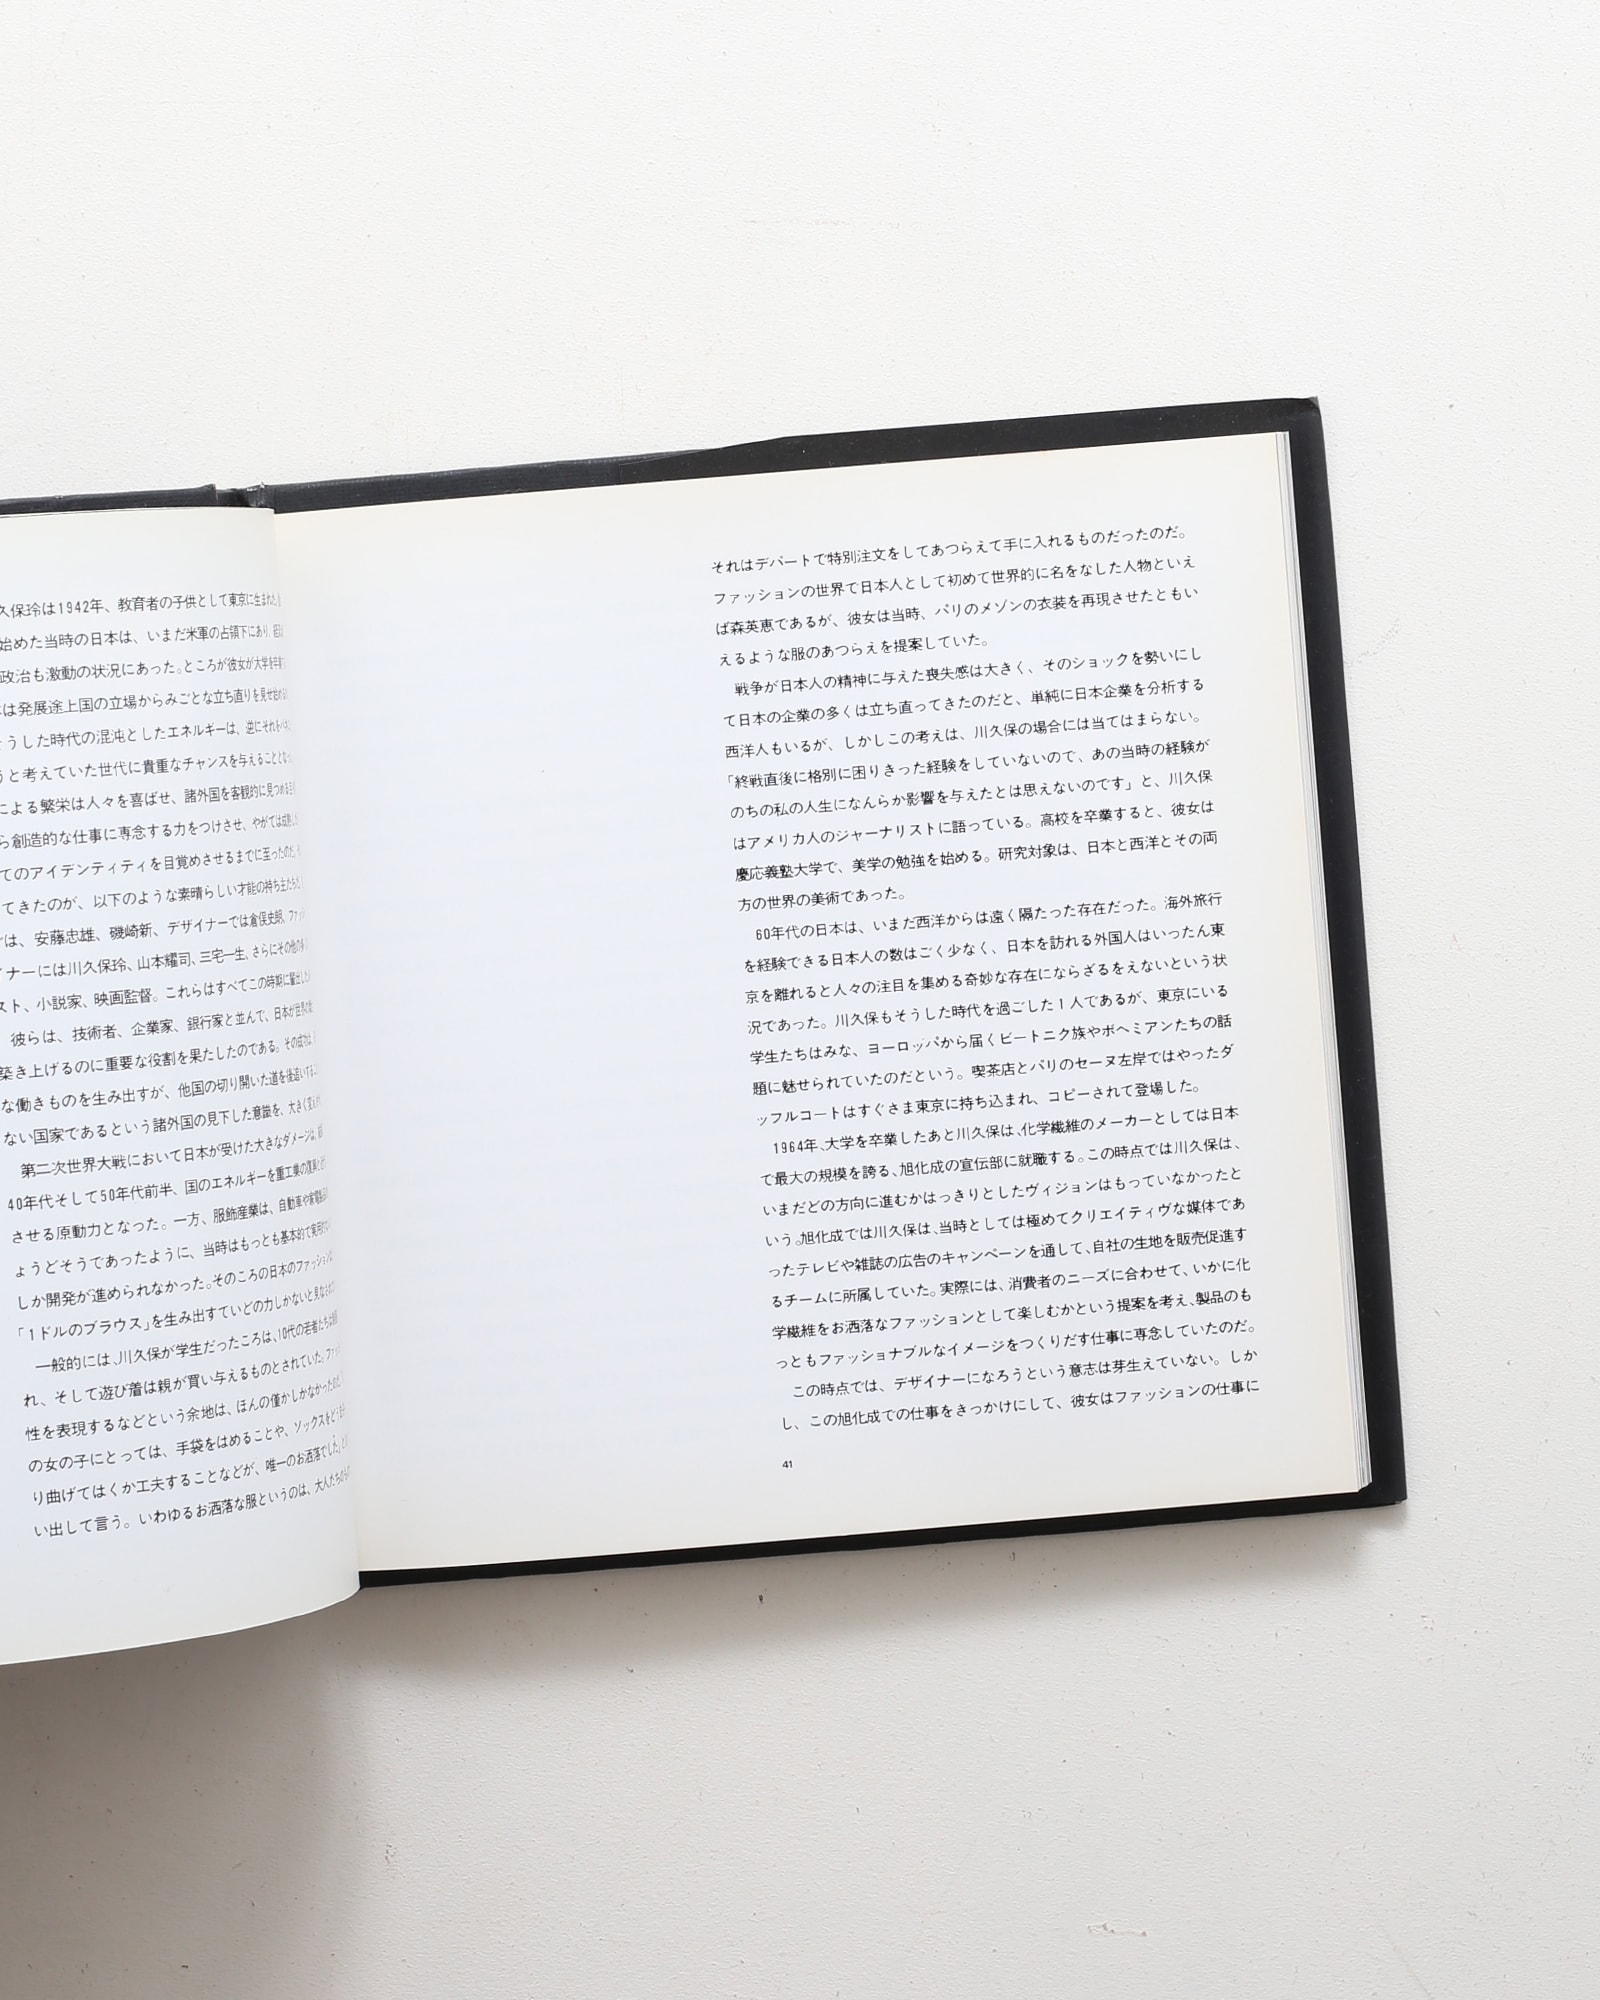 久保玲は1942年、教育者の子供として東京に生まれた。
始めた当時の日本は、いまだ米軍の占領下にあり、
政治も激動の状況にあった。ところが彼女が大学を卒業
は発展途上国の立場からみごとな立ち直りを見せ始め
うした時代の混沌としたエネルギーは、逆にそれを
うと考えていた世代に貴重なチャンスを与えることとなっ
による繁栄は人々を喜ばせ、諸外国を客観的に見つめる
ら創造的な仕事に専念する力をつけさせ、やがては成熟し
てのアイデンティティを目覚めさせるまでに至ったのだ。
てきたのが、以下のような素晴らしい才能の持ち主たちだ
は、安藤忠雄、磯崎新、デザイナーでは倉俣史朗、ファッ
ナーには川久保玲、山本耀司、三宅一生、さらにその他の
スト、小説家、映画監督。これらはすべてこの時期に輩出した
彼らは、技術者、企業家、銀行家と並んで、日本が世界に
築き上げるのに重要な役割を果たしたのである。その成功は
な働きものを生み出すが、他国の切り開いた道を後追いする
ない国家であるという諸外国の見下した意識を、大きく変え
第二次世界大戦において日本が受けた大きなダメージは、
40年代そして50年代前半、国のエネルギーを重工業の復興に
させる原動力となった。一方、服飾産業は、自動車や家電
ょうどそうであったように、当時はもっとも基本的で実用
しか開発が進められなかった。そのころの日本のファッション
「1ドルのブラウス」を生み出すていどの力しかないと見なされ
一般的には、川久保が学生だったころは、10代の若者たちは
れ、そして遊び着は親が買い与えるものとされていた。ファッ
性を表現するなどという余地は、ほんの僅かしかなかったのだ。
の女の子にとっては、手袋をはめることや、ソックスを
り曲げてはくか工夫することなどが、唯一のお洒落でした」と
い出して言う。いわゆるお洒落な服というのは、大人たちのもの
それはデパートで特別注文をしてあつらえて手に入れるものだったのだ。
ファッションの世界で日本人として初めて世界的に名をなした人物といえ
ば森英恵であるが、彼女は当時、パリのメゾンの衣装を再現させたともい
えるような服のあつらえを提案していた。
戦争が日本人の精神に与えた喪失感は大きく、そのショックを勢いにし
て日本の企業の多くは立ち直ってきたのだと、単純に日本企業を分析する
西洋人もいるが、しかしこの考えは、川久保の場合には当てはまらない。
「終戦直後に格別に困りきった経験をしていないので、あの当時の経験が
のちの私の人生になんらか影響を与えたとは思えないのです」と、川久保
はアメリカ人のジャーナリストに語っている。高校を卒業すると、彼女は
慶応義塾大学で、美学の勉強を始める。研究対象は、日本と西洋とその両
方の世界の美術であった。
60年代の日本は、いまだ西洋からは遠く隔たった存在だった。海外旅行
を経験できる日本人の数はごく少なく、日本を訪れる外国人はいったん東
京を離れると人々の注目を集める奇妙な存在にならざるをえないという状
況であった。川久保もそうした時代を過ごした1人であるが、東京にいる
学生たちはみな、ヨーロッパから届くビートニク族やボヘミアンたちの話
題に魅せられていたのだという。喫茶店とパリのセーヌ左岸ではやったダ
ッフルコートはすぐさま東京に持ち込まれ、コピーされて登場した。
1964年、大学を卒業したあと川久保は、化学繊維のメーカーとしては日本
で最大の規模を誇る、旭化成の宣伝部に就職する。この時点では川久保は、
いまだどの方向に進むかはっきりとしたヴィジョンはもっていなかったと
いう。旭化成では川久保は、当時としては極めてクリエイティヴな媒体であ
ったテレビや雑誌の広告のキャンペーンを通して、自社の生地を販売促進す
るチームに所属していた。実際には、消費者のニーズに合わせて、いかに化
学繊維をお洒落なファッションとして楽しむかという提案を考え、製品のも
っともファッショナブルなイメージをつくりだす仕事に専念していたのだ。
この時点では、デザイナーになろうという意志は芽生えていない。しか
し、この旭化成での仕事をきっかけにして、彼女はファッションの仕事に
41